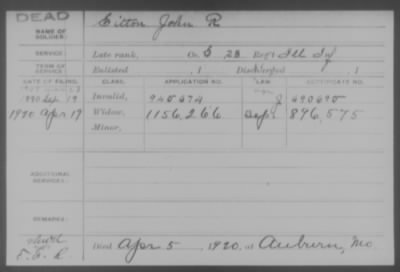 DEAD
NAME OF SOLDIER: Citton John R
SERVICE: Late rank, Co. G 28 Reg't Ill Inf
TERM OF SERVICE: Enlisted , 1 Discharged , 1
DATE OF FILING. CLASS. APPLICATION NO. LAW. CERTIFICATE NO.
1890 Sep. 19 Invalid, 940674 J 690695
1920 Apr 19 Widow, 1156,266 Sep. 896,575
Minor,
ADDITIONAL SERVICES:
REMARKS:
Died Apr 5, 1920, at Auburn, Mo.